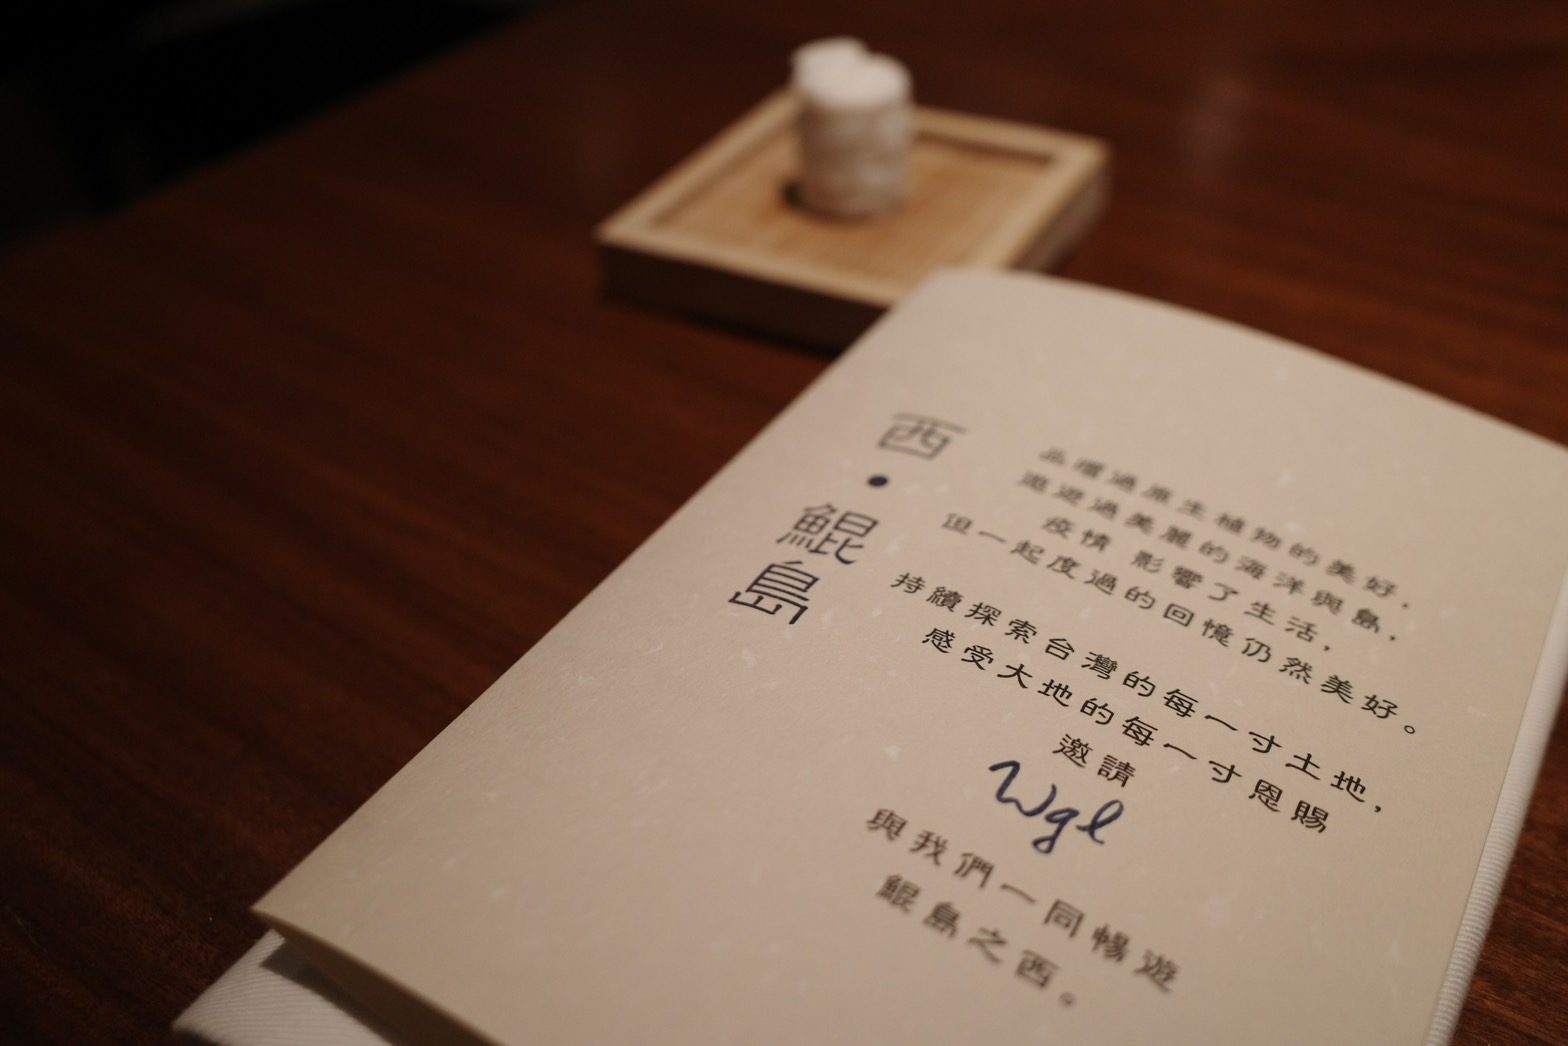 西・鯤島
品嚐過原生植物的美好，
遨遊過美麗的海洋與島，
疫情 影響了生活，
但一起度過的回憶仍然美好。
持續探索台灣的每一寸土地，
感受大地的每一寸恩賜
邀請
Wgl
與我們一同暢遊
鯤島之西。